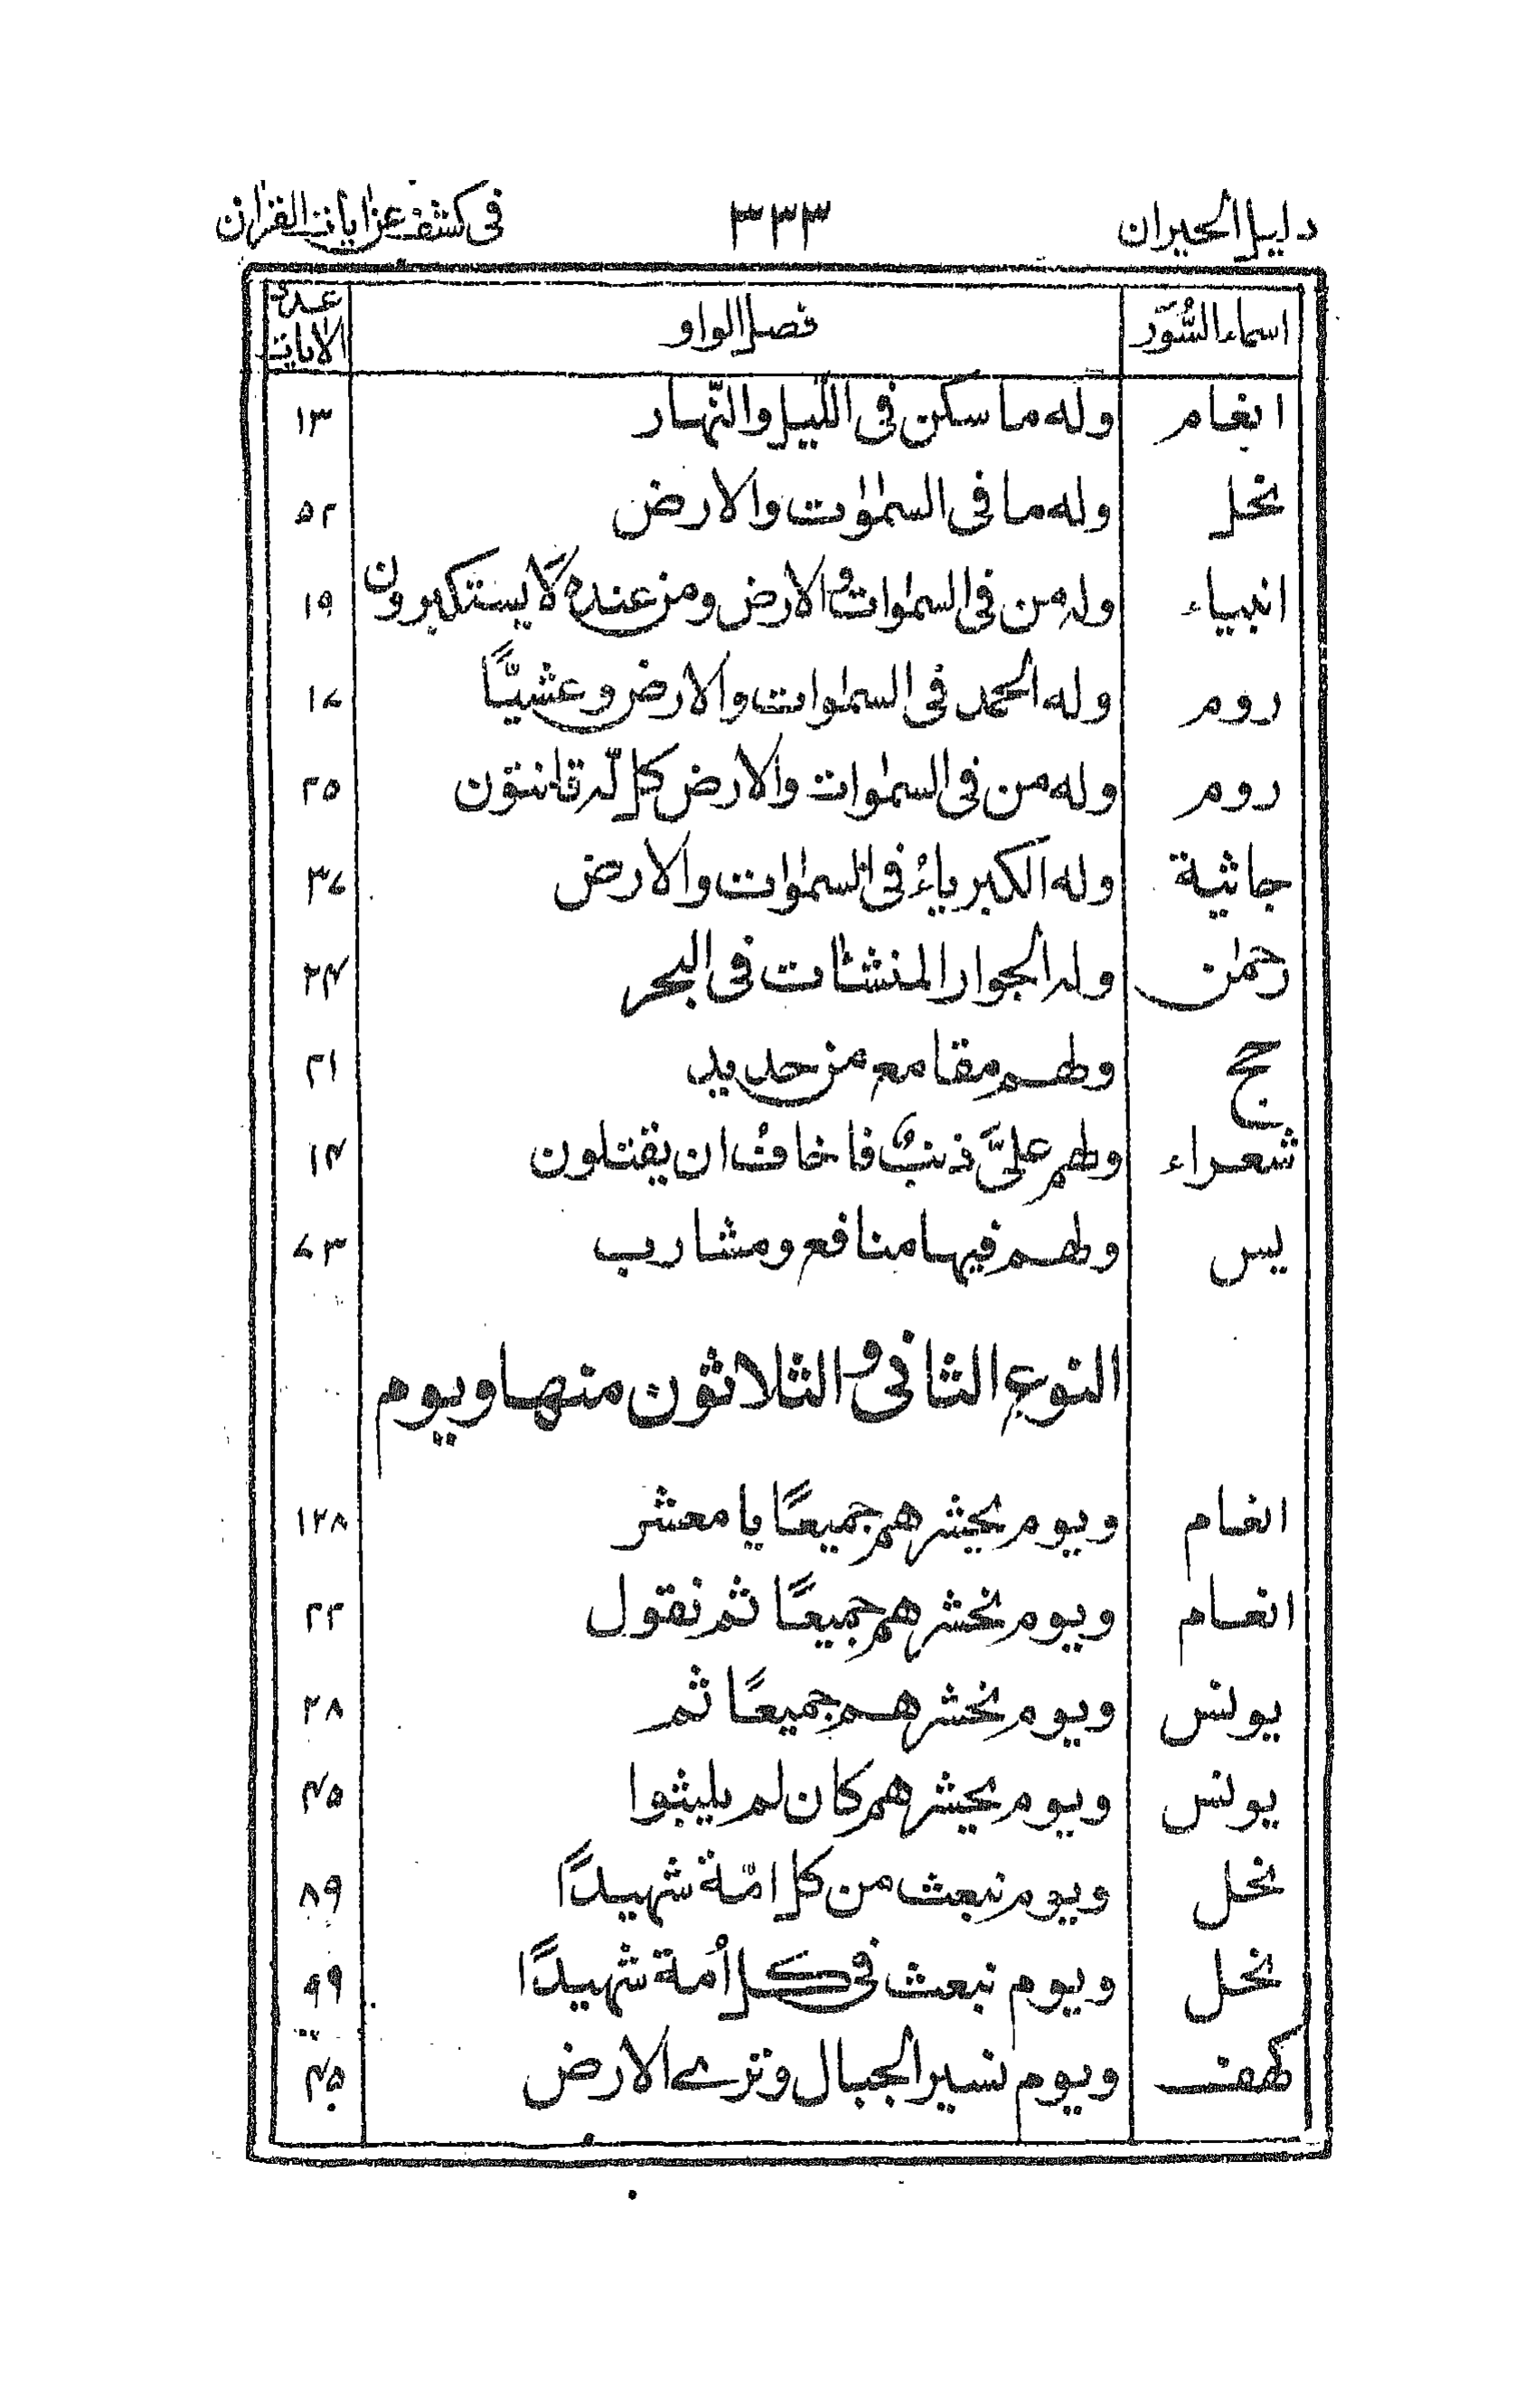 دليل الحيران ٣٣٣ فى كشف عن ايات القران
اسماء السُّوَر فصل الواو عدد الايات
انعام وله ما سكن فى اللّيل والنّهار ١٣
نحل وله ما فى السمٰوٰت والارض ٥٢
انبياء وله من فى السمٰوات والارض ومن عنده لا يستكبرون ١٩
روم وله الحمد فى السمٰوات والارض وعشيًّا ١٧
روم وله من فى السمٰوات والارض كل لّه قانتون ٢٥
جاثية وله الكبرياءُ فى السمٰوات والارض ٣٧
رحمٰن وله الجوار المنشئات فى البحر ٢٤
حج ولهم مقامع من حديد ٢١
شعراء ولهم علىَّ ذنبٌ فاخافُ ان يقتلون ١٤
يس ولهم فيها منافع ومشارب ٧٣
النوع الثانى والثلاثون منها ويوم
انعام ويوم يحشرهم جميعًا يا معشر ١٢٨
انعام ويوم نحشرهم جميعًا ثم نقول ٢٢
يونس ويوم نحشرهم جميعًا ثم ٢٨
يونس ويوم يحشرهم كان لم يلبثوا ٤٥
نحل ويوم نبعث من كل امّة شهيدًا ٨٩
نحل ويوم نبعث فى كل اُمة شهيدًا ٩٩
كهف ويوم نسير الجبال وترے الارض ٤٥